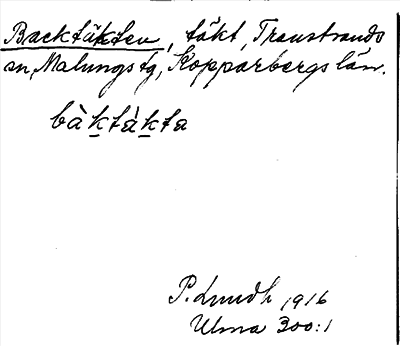 Backtäkten, täkt, Transtrands
sn, Malungs tg, Kopparbergs län.
bàktàkta
P. Lundh 1916
Ulma 300:1